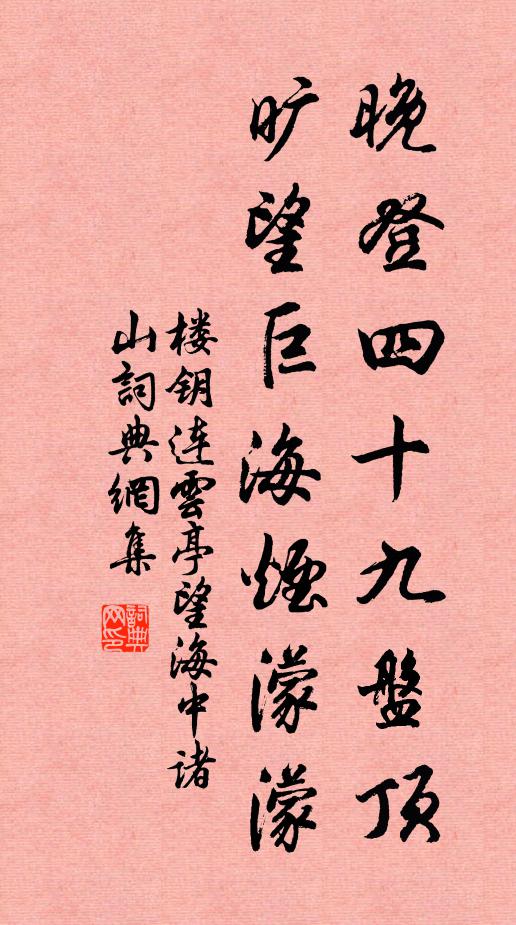 晚登四十九盤顶
旷望巨海煙濛濛
楼钥连雲亭望海中诸
山詞典網集
詞典
网印